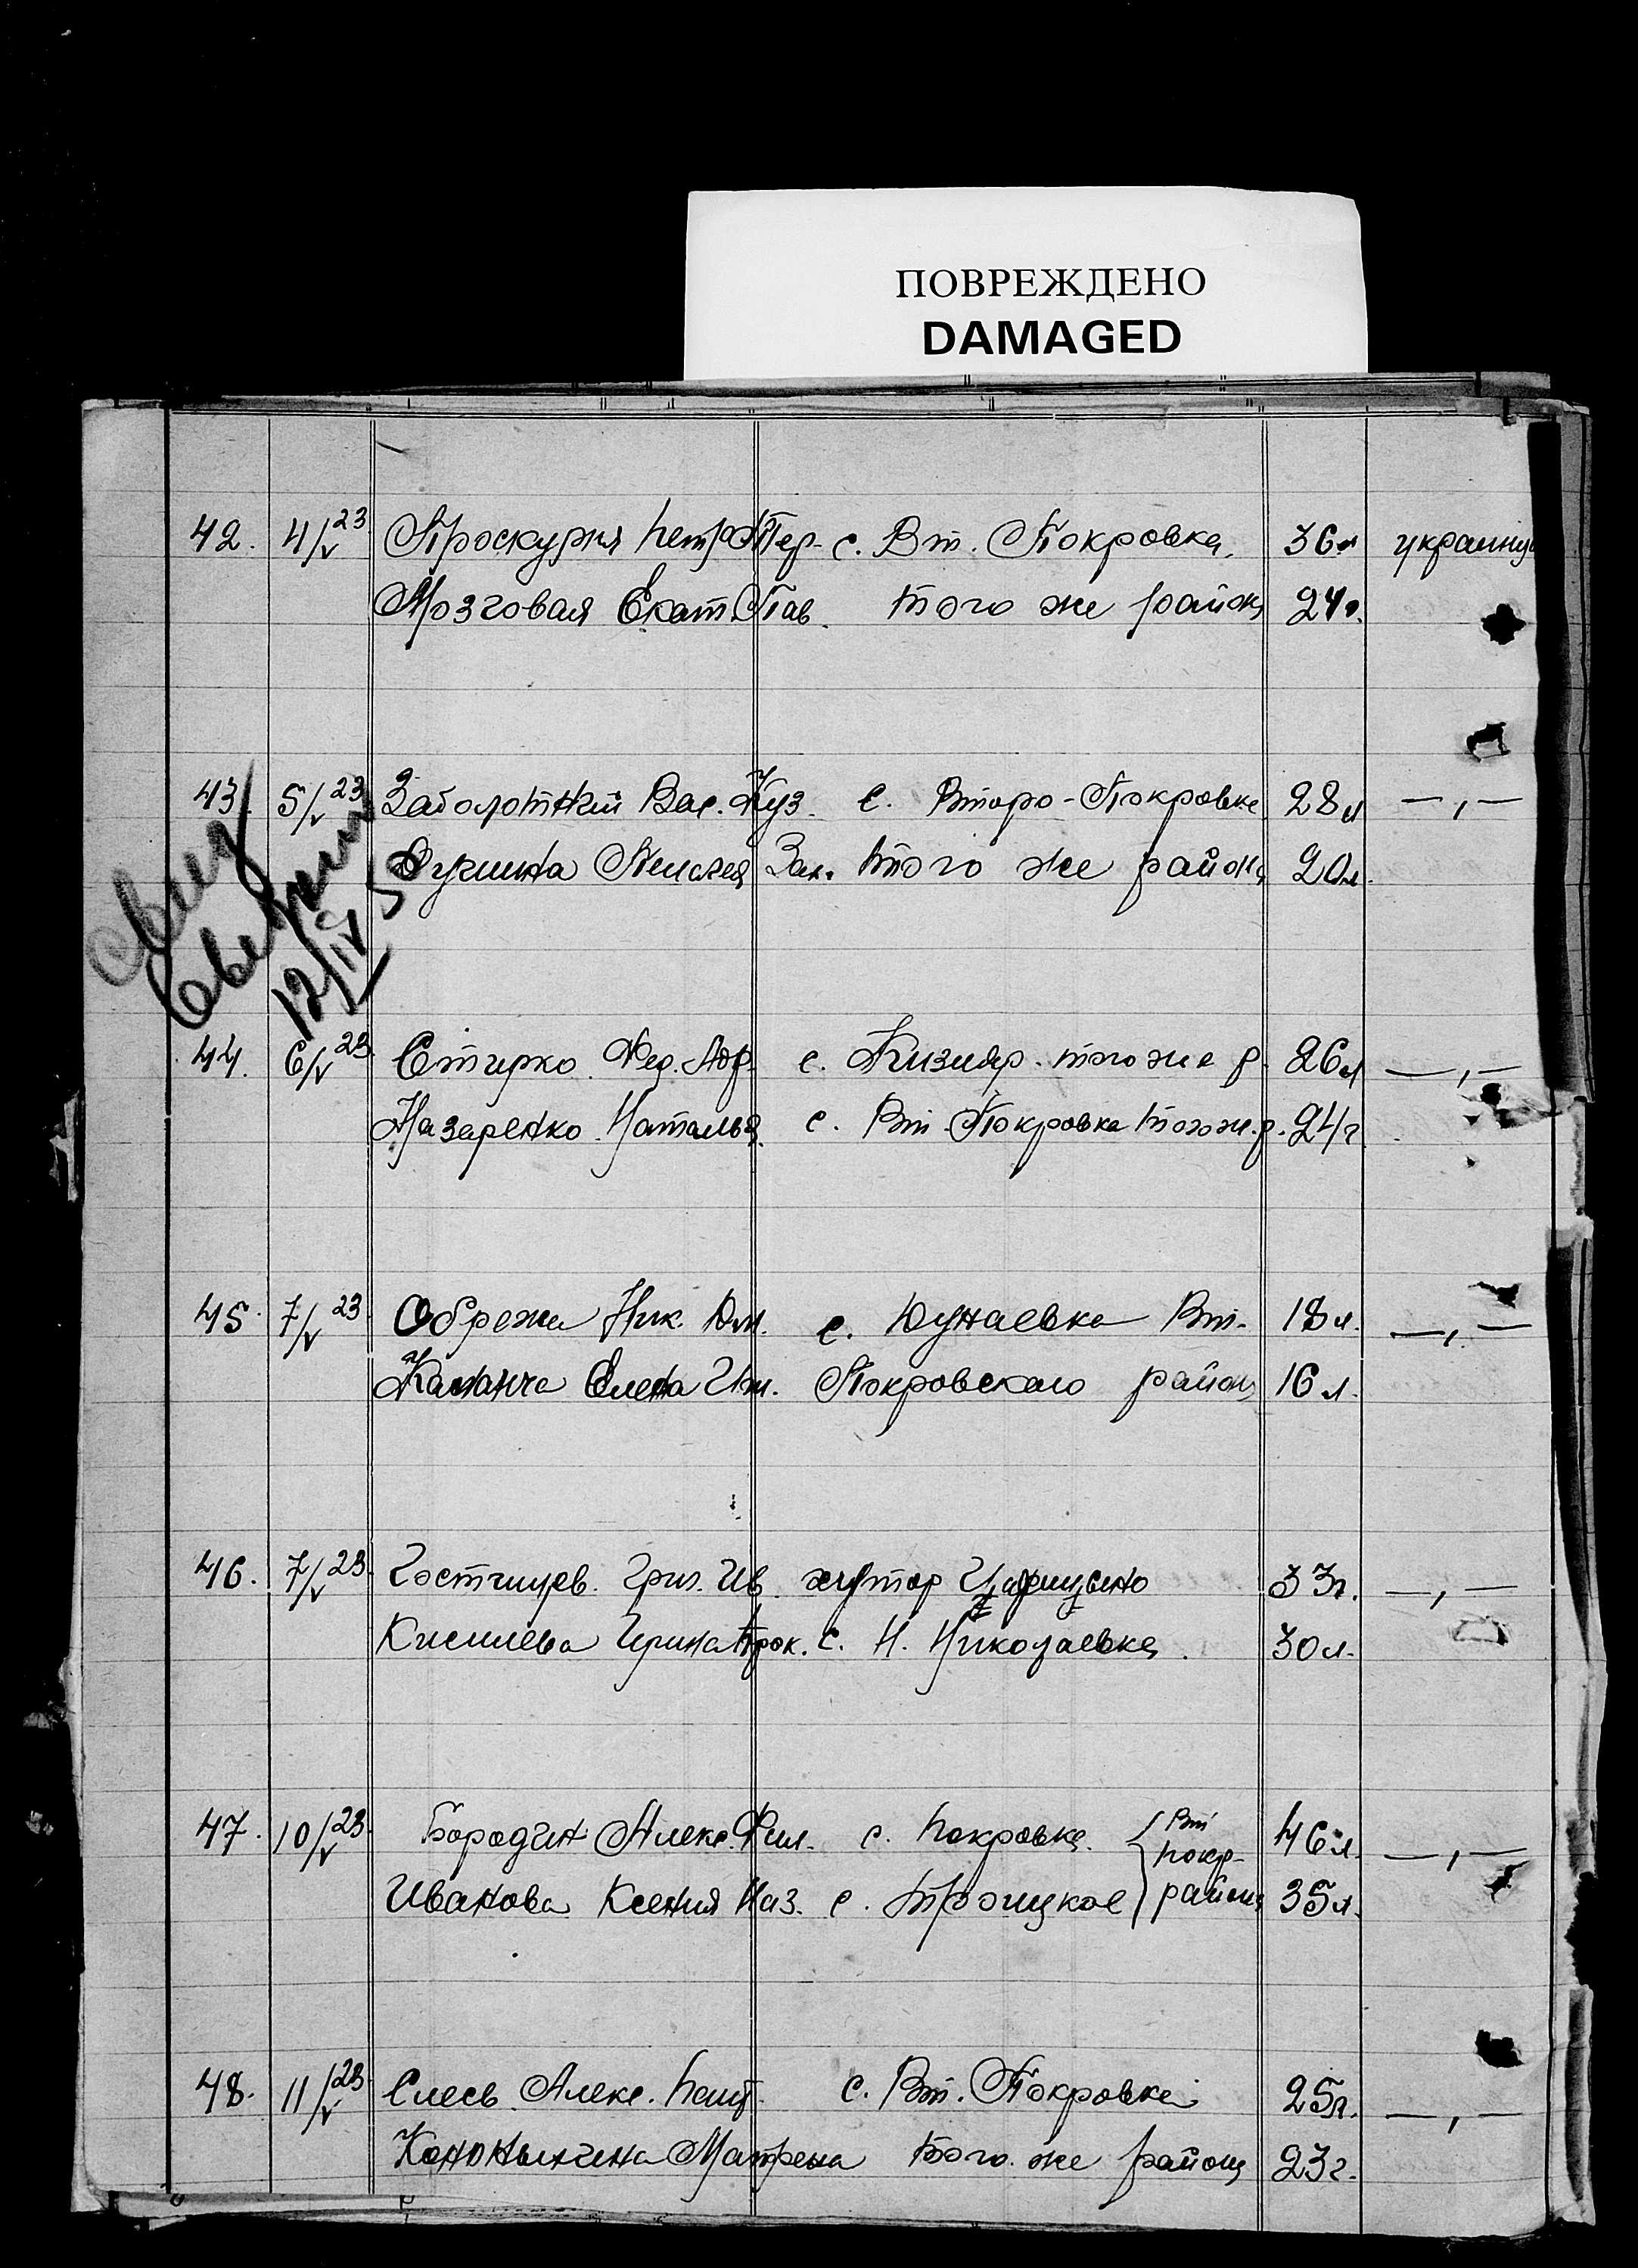 ПОВРЕЖДЕНО
DAMAGED
42. 4/V 23 Проскурня Петр Пер. с. Вт. Покровка. 36л украинцы
Мозговая Екат. Пав. того же района 24г.
43. 5/V 23 Заболотний Вас. Куз. с. Второ-Покровка 28л — „ —
Зах. того же района 20л.
12/IV
44. 6/V 23 Стирко Фед. с. Кизияр того же р. 26л — „ —
Назаренко Наталья с. Вт. Покровка того ж. р. 24г
45. 7/V 23 Обрежа Ник. Дм. с. Дунаевка Вт. 18л. — „ —
Елена Покровского района 16л.
46. 7/V 23 Гостищев Григ. Ив. хутор 33г. — „ —
Киселева Ирина Прок. с. Н. Николаевка 30л.
47. 10/V 23 Бородин Алекс. Фил. с. Покровка { Вт 46л. — „ —
Покр.
Иванова Ксения Наз. с. Троицкое района 35л.
48. 11/V 23 Слесь Алекс. с. Вт. Покровка 25л. — „ —
Матрена того же района 23г.